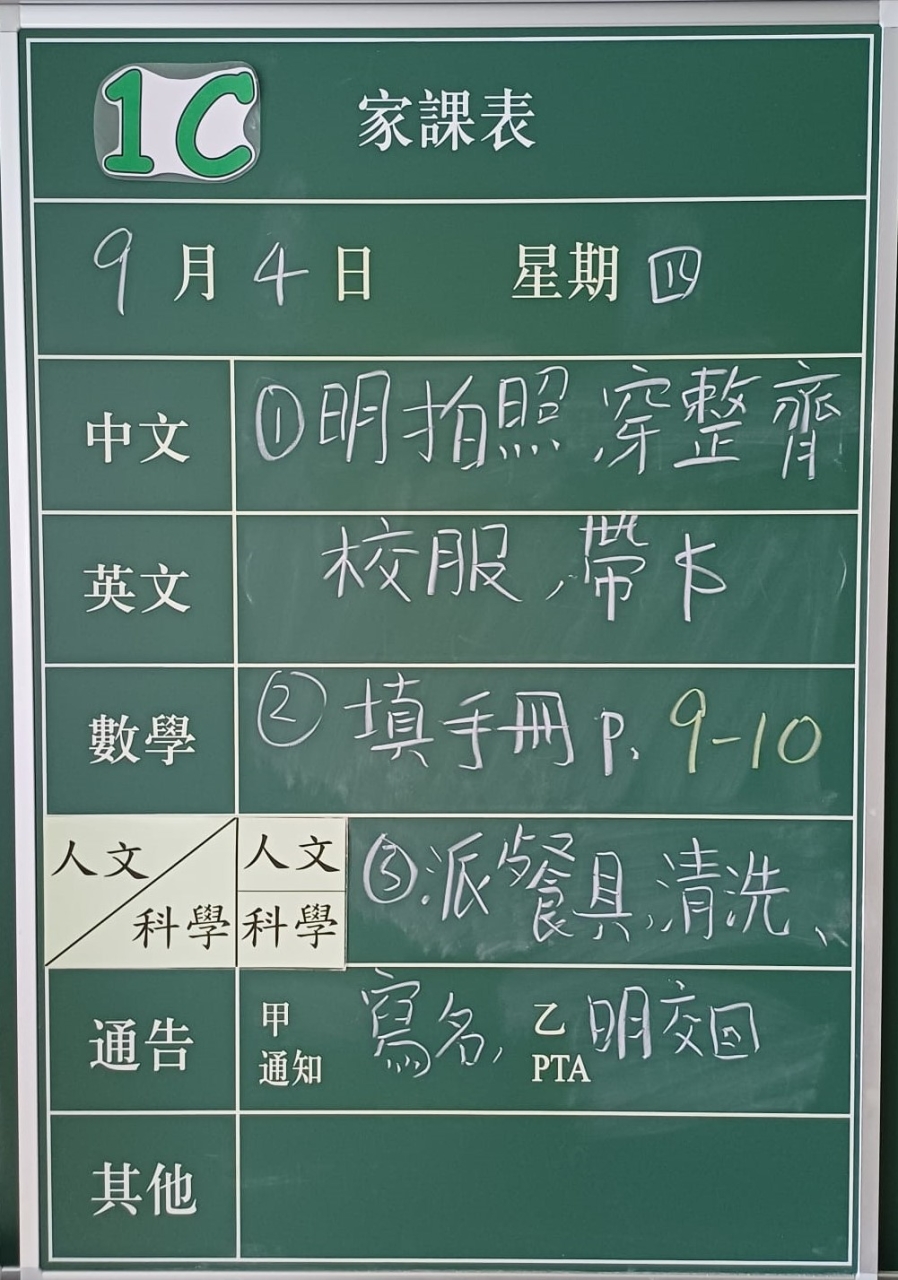 1C 家課表
9月4日 星期四
中文 ①明拍照 穿整齊
英文 校服，帶卡
數學 ②填手冊 p. 9-10
人文 科學 人文 科學 ③派餐具，清洗、
通告 甲 通知 寫名， 乙 PTA 明交回
其他